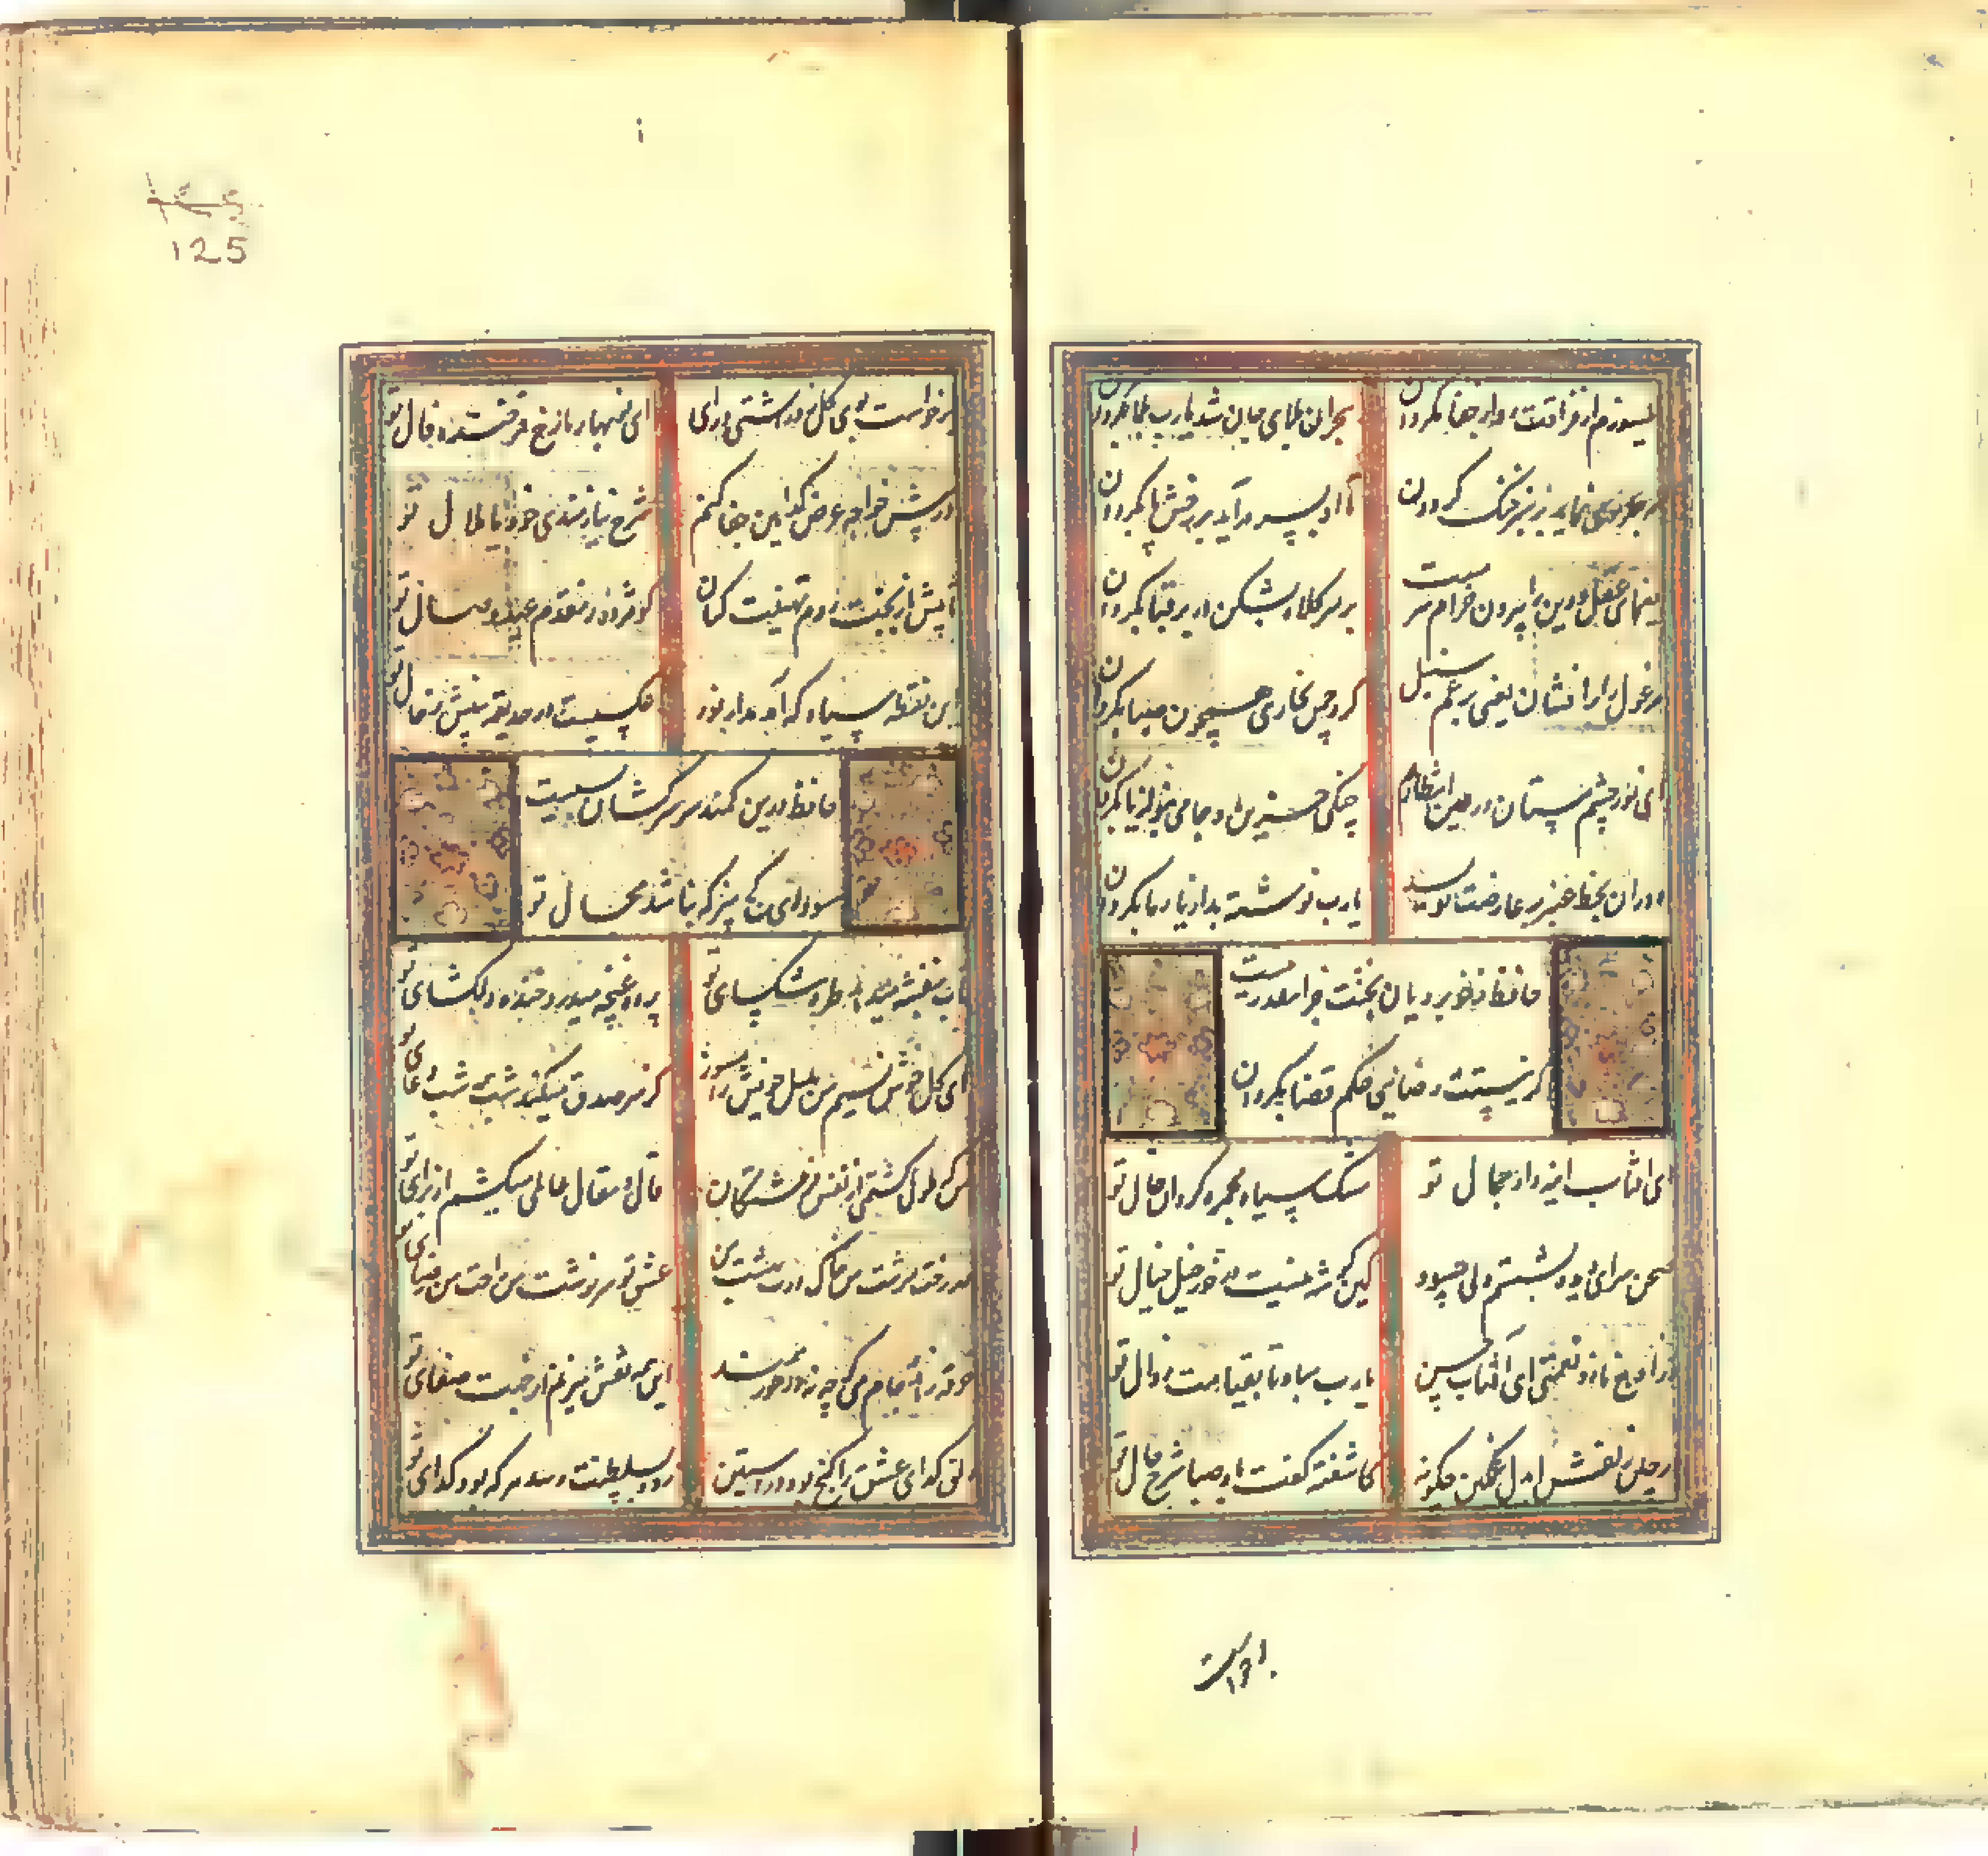 میسوزم از فراقت رو از جفا بگردان
هجران بلای جان شد یارب بلا بگردان
مه جلوه می نماید بر سبز خنک گردون
تا او بسر درآید بر رخش پا بگردان
یغمای عقل و دین را بیرون خرام سرمست
بر سر کلاه بشکن در بر قبا بگردان
مرغول را برافشان یعنی برغم سنبل
گرد چمن بخاری همچون صبا بگردان
ای نور چشم مستان در عین انتظارم
چنگی حزین و جامی بنواز یا بگردان
دوران بخط خیر بر عارضت نویسد
یارب نوشته بد از یار ما بگردان
حافظ ز خوبرویان بختت جز اینقدر نیست
گر نیستت رضائی حکم قضا بگردان
ای آفتاب آینه دار جمال تو
مشک سیاه مجمره گردان خال تو
صحن سرای دیده بشستم ولی چه سود
کین گوشه نیست در خور خیل خیال تو
در اوج ناز و نعمتی ای آفتاب حسن
یارب مباد تا بقیامت زوال تو
در چین زلفش ای دل مسکین چگونه
کاشفته گفت باد صبا شرح حال تو
برخاست
برخاست بوی گل ز در آشتی درآی
ای نوبهار ما رخ فرخنده فال تو
در پیش خواجه عرض کدامین جفا کنم
شرح نیازمندی خود یا ملال تو
تا پیش از بخت روم تهنیت کنان
کو مژده ز مقدم عید وصال تو
این نقطه سیاه که آمد مدار نور
عکسیست در حدیقه بینش ز خال تو
حافظ درین کمند سر سرکشان بسیست
سودای کج مپز که نباشد مجال تو
تاب بنفشه میدهد طره مشکسای تو
پرده غنچه میدرد خنده دلگشای تو
ای گل خوش نسیم من بلبل خویش را مسوز
کز سر صدق میکند شب همه شب دعای تو
من که ملول گشتمی از نفس فرشتگان
قال و مقال عالمی میکشم از برای تو
مهر رخت سرشت من خاک درت بهشت من
عشق تو سرنوشت من راحت من رضای تو
خرقه زهد و جام می گرچه نه درخور همند
این همه نقش میزنم از جهت رضای تو
دلق گدای عشق را گنج بود در آستین
زود بسلطنت رسد هر که بود گدای تو
125